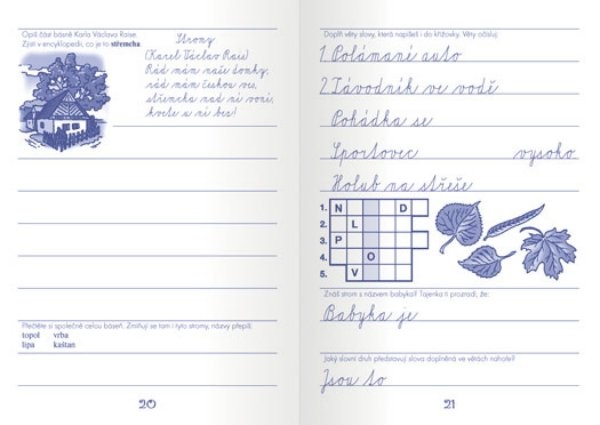 Opiš část básně Karla Václava Raise.
Zjisti v encyklopedii, co je to střemcha.
Stromy
(Karel Václav Rais)
Rád mám naše domky,
rád mám českou ves,
střemcha nad ní voní,
kvete v ní bez!
Přečtěte si společně celou báseň. Zmiňují se tam i tyto stromy, názvy přepiš:
topol vrba
lípa kaštan
20
Doplň věty slovy, která napíšeš i do křížovky. Věty očísluj.
1. Polámané auto
2. Závodník ve vodě
Pohádka se
Sportovec vysoko
Holub na střeše
1. N D
2. L
3. P
4. O
5. V
Znáš strom s názvem babyka? Tajenka ti prozradí, že:
Babyka je
Jaký slovní druh představují slova doplněná ve větách nahoře?
Jsou to
21